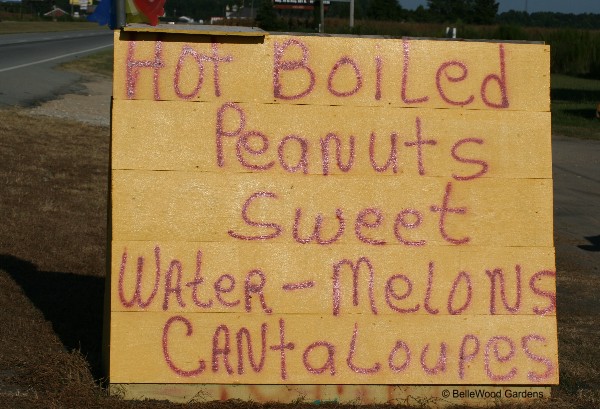 Hot Boiled
Peanuts
Sweet
Water-Melons
Cantaloupes
© BelleWood Gardens